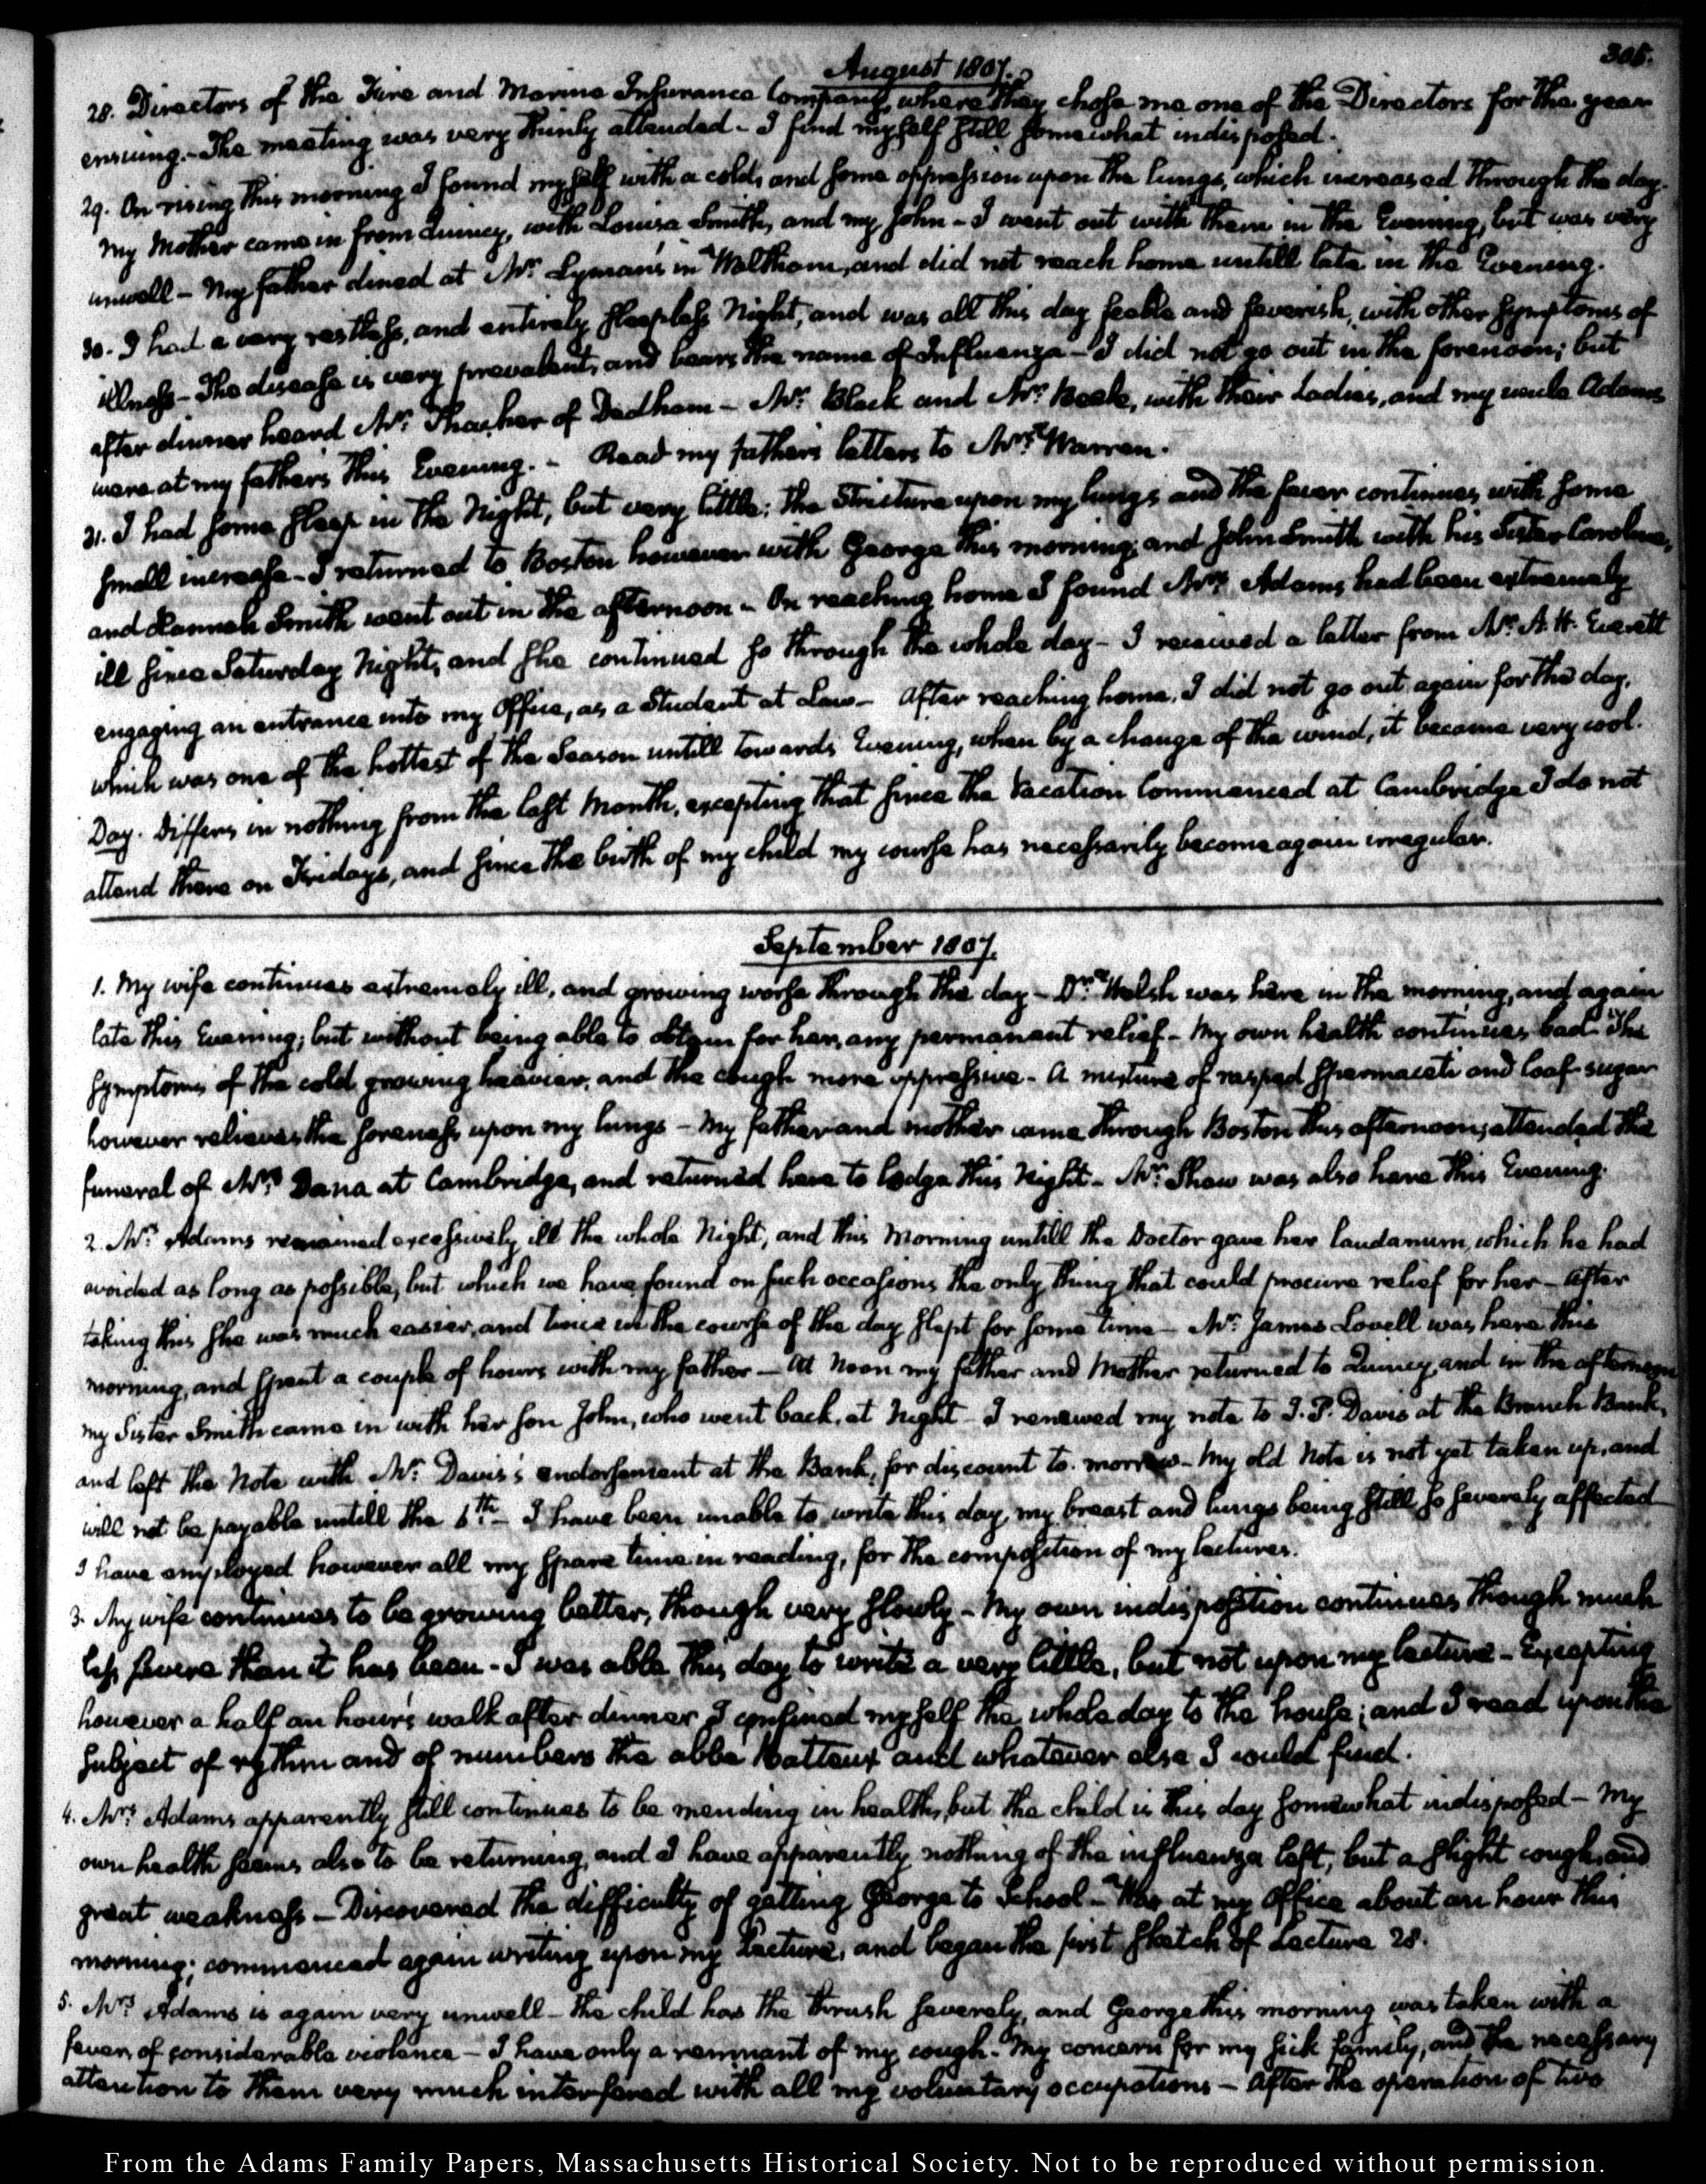 305.
August 1807.
28. Directors of the Fire and Marine Insurance Company, where they chose me one of the Directors for the year
ensuing.- The meeting was very thinly attended - I find myself still somewhat indisposed.
29. On rising this morning I found myself with a cold, and some oppression upon the lungs, which increased through the day.
My Mother came in from Quincy, with Louisa Smith, and my John - I went out with them in the Evening, but was very
unwell - My father dined at Mr. Lyman's in Waltham, and did not reach home untill late in the Evening.
30. I had a very restless, and entirely sleepless Night, and was all this day feeble and feverish, with other symptoms of
illness - The disease is very prevalent, and bears the name of Influenza - I did not go out in the forenoon; but
after dinner heard Mr. Thacher of Dedham - Mr. Black and Mr. Beale, with their Ladies, and my uncle Adams
were at my fathers this Evening. - Read my father's letters to Mrs. Warren.
31. I had some sleep in the Night, but very little; the stricture upon my lungs and the fever continues, with some
small increase - I returned to Boston however with George this morning; and John Smith with his Sister Caroline,
and Hannah Smith went out in the afternoon - On reaching home I found Mrs. Adams had been extremely
ill since Saturday Night, and she continued so through the whole day - I received a letter from Mr. A. H. Everett
engaging an entrance into my Office, as a Student at Law - After reaching home, I did not go out again for the day,
which was one of the hottest of the Season untill towards Evening, when by a change of the wind, it became very cool.
Day. Differs in nothing from the last Month, excepting that since the Vacation Commenced at Cambridge I do not
attend there on Fridays, and since the birth of my child my course has necessarily become again irregular.
September 1807.
1. My wife continues extremely ill, and growing worse through the day - Dr. Welsh was here in the morning, and again
late this Evening; but without being able to obtain for her, any permanent relief - My own health continues bad. The
symptoms of the cold growing heavier, and the cough more oppressive - A mixture of rasped spermaceti and loaf-sugar
however relieves the soreness upon my lungs - My father and mother came through Boston this afternoon, attended the
funeral of Mrs. Dana at Cambridge, and returned here to lodge this Night - Mr. Shaw was also here this Evening.
2. Mrs. Adams remained excessively ill the whole Night, and this Morning untill the Doctor gave her laudanum, which he had
avoided as long as possible, but which we have found on such occasions the only thing that could procure relief for her - After
taking this she was much easier, and twice in the course of the day slept for some time - Mr. James Lovell was here this
morning, and spent a couple of hours with my father - At Noon my father and Mother returned to Quincy, and in the afternoon
my Sister Smith came in with her son John, who went back, at Night - I renewed my note to I. P. Davis at the Branch Bank,
and left the Note with Mr. Davis's endorsement at the Bank, for discount to-morrow - My old Note is not yet taken up, and
will not be payable untill the 6th - I have been unable to write this day, my breast and lungs being still so severely affected
I have employed however all my spare time in reading, for the composition of my lectures.
3. My wife continues to be growing better, though very slowly - My own indisposition continues though much
less severe than it has been - I was able this day to write a very little, but not upon my lecture - Excepting
however a half an hour's walk after dinner I confined myself the whole day to the house; and I read upon the
subject of rythm and of numbers the abbé Batteux and whatever else I could find.
4. Mrs. Adams apparently still continues to be mending in health, but the child is this day somewhat indisposed - My
own health seems also to be returning, and I have apparently nothing of the influenza left, but a slight cough, and
great weakness - Discovered the difficulty of getting George to School - Was at my Office about an hour this
morning; commenced again writing upon my Lecture, and began the first sketch of Lecture 28.
5. Mrs. Adams is again very unwell - the child has the thrush severely, and George this morning was taken with a
fever, of considerable violence - I have only a remnant of my cough - My concern for my sick family, and the necessary
attention to them very much interfered with all my voluntary occupations - After the operation of two
From the Adams Family Papers, Massachusetts Historical Society. Not to be reproduced without permission.